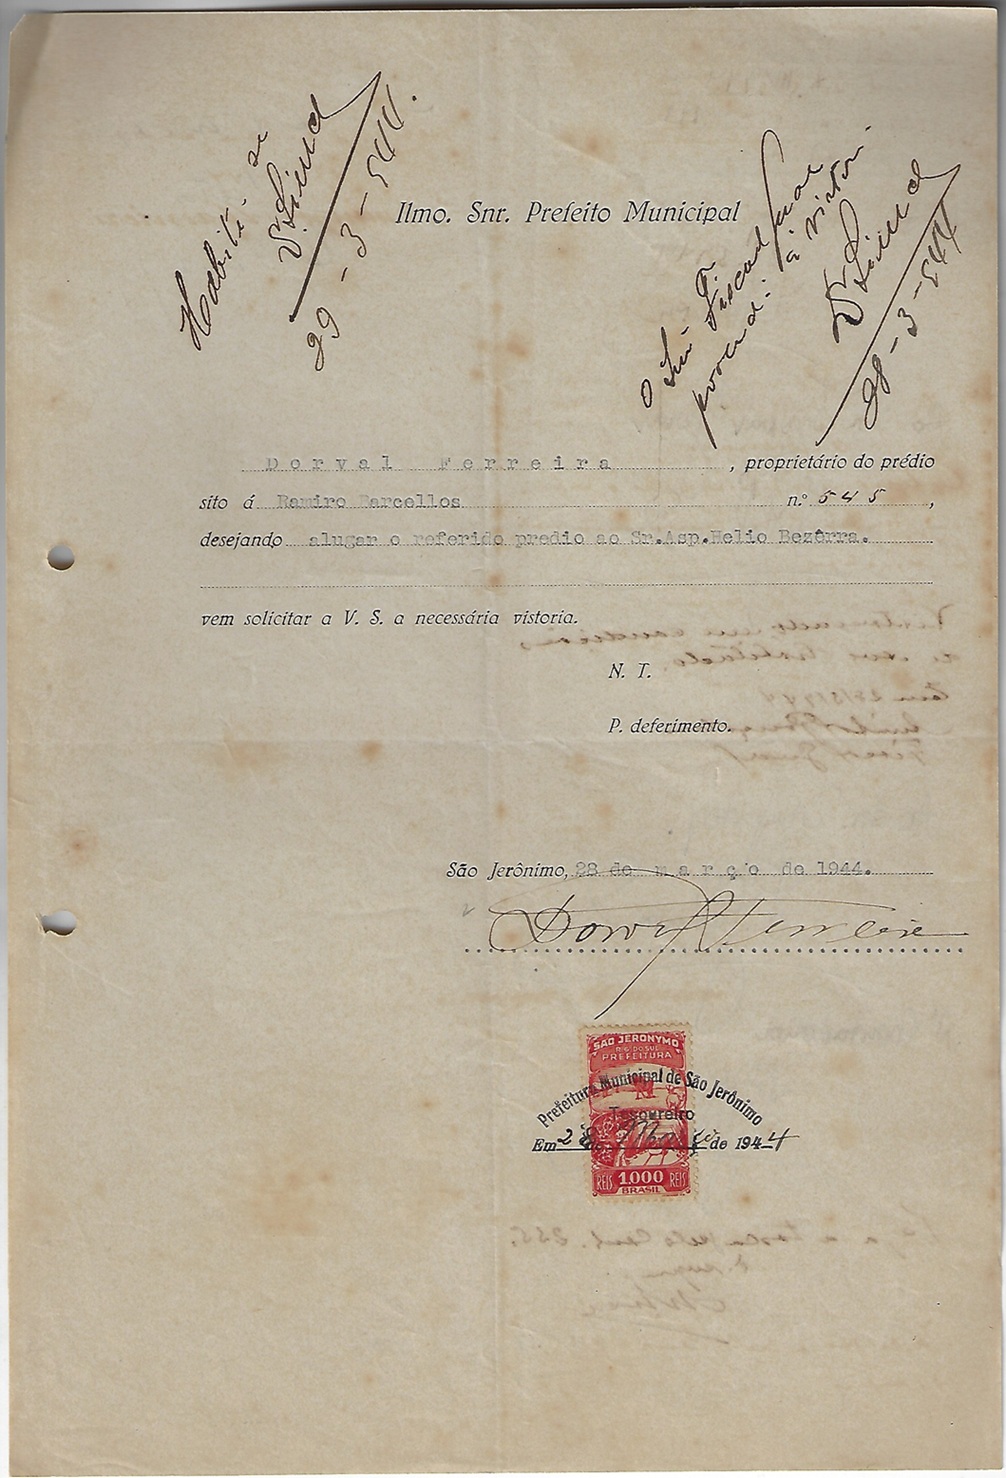 Habite-se
29-3-944.
Ilmo. Snr. Prefeito Municipal
O Snr Fiscal
á vistori
28-3-944
Dorval Ferreira, proprietário do prédio
sito á Ramiro Barcellos n.º 545,
desejando alugar o referido predio ao Sr.Asp.Helio Bezêrra.
vem solicitar a V. S. a necessária vistoria.
N. T.
P. deferimento.
São Jerônimo, 28 de março de 1944.
Dorval Ferreira
SÃO JERONYMO
R.G. DO SUL
PREFEITURA
Prefeitura Municipal de São Jerônimo
Tesoureiro
Em 28 de Março de 1944
REIS 1.000 REIS
BRASIL